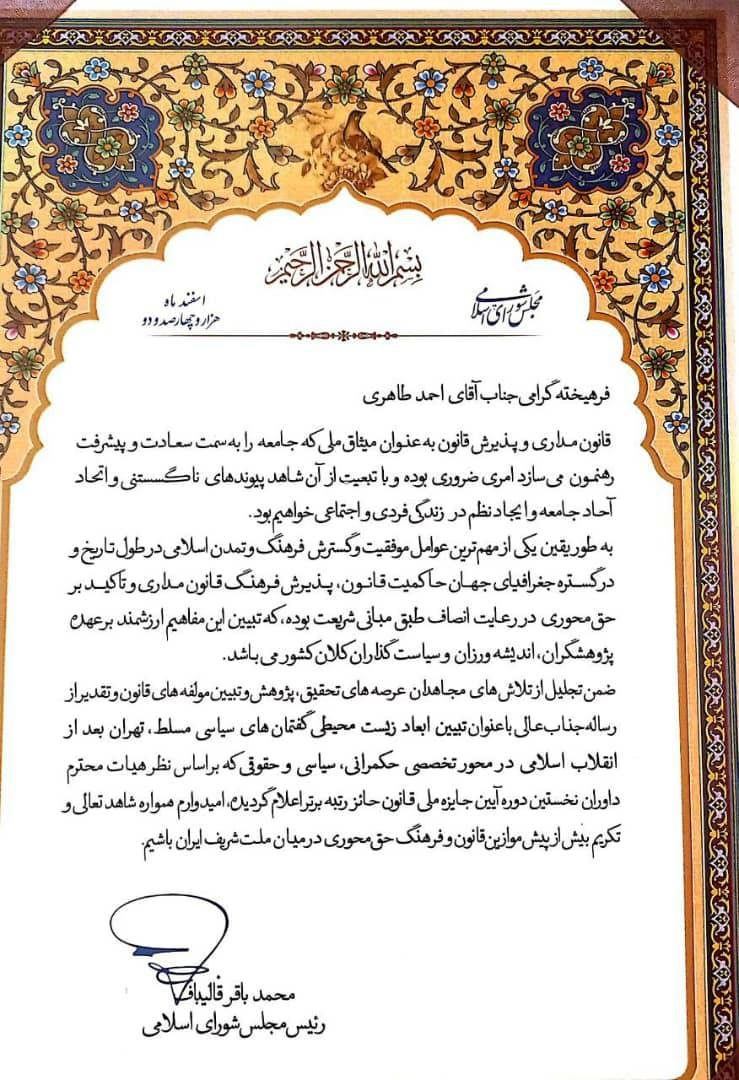 بسم الله الرحمن الرحیم
مجلس شورای اسلامی
اسفند ماه
هزار و چهارصد و دو
فرهیخته گرامی جناب آقای احمد طاهری
قانون مداری و پذیرش قانون به عنوان میثاق ملی که جامعه را به سمت سعادت و پیشرفت
رهنمون می‌سازد امری ضروری بوده و با تبعیت از آن شاهد پیوندهای ناگسستنی و اتحاد
آحاد جامعه و ایجاد نظم در زندگی فردی و اجتماعی خواهیم بود.
به طور یقین یکی از مهم‌ترین عوامل موفقیت و گسترش فرهنگ و تمدن اسلامی در طول تاریخ و
در گستره جغرافیای جهان حاکمیت قانون، پذیرش فرهنگ قانون مداری و تأکید بر
حق محوری در رعایت انصاف طبق مبانی شریعت بوده، که تبیین این مفاهیم ارزشمند بر عهده
پژوهشگران، اندیشه ورزان و سیاست گذاران کلان کشور می باشد.
ضمن تجلیل از تلاش های مجاهدان عرصه های تحقیق، پژوهش و تبیین مولفه های قانون و تقدیر از
رساله جناب عالی با عنوان تبیین ابعاد زیست محیطی گفتمان های سیاسی مسلط، تهران بعد از
انقلاب اسلامی در محور تخصصی حکمرانی، سیاسی و حقوقی که براساس نظر هیات محترم
داوران نخستین دوره آیین جایزه ملی قانون حائز رتبه برتر اعلام گردیده، امیدوارم همواره شاهد تعالی و
تکریم بیش از پیش موازین قانون و فرهنگ حق محوری در میان ملت شریف ایران باشیم.
محمد باقر قالیباف
رئیس مجلس شورای اسلامی